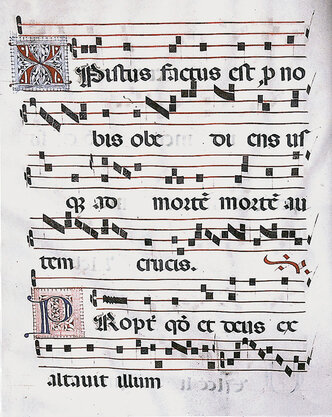 Xpistus factus est p no
bis obe di ens us
q̨ ad mortē mortē au
tem crucis.
Propt̄ qđ et deus ex
altauit illum